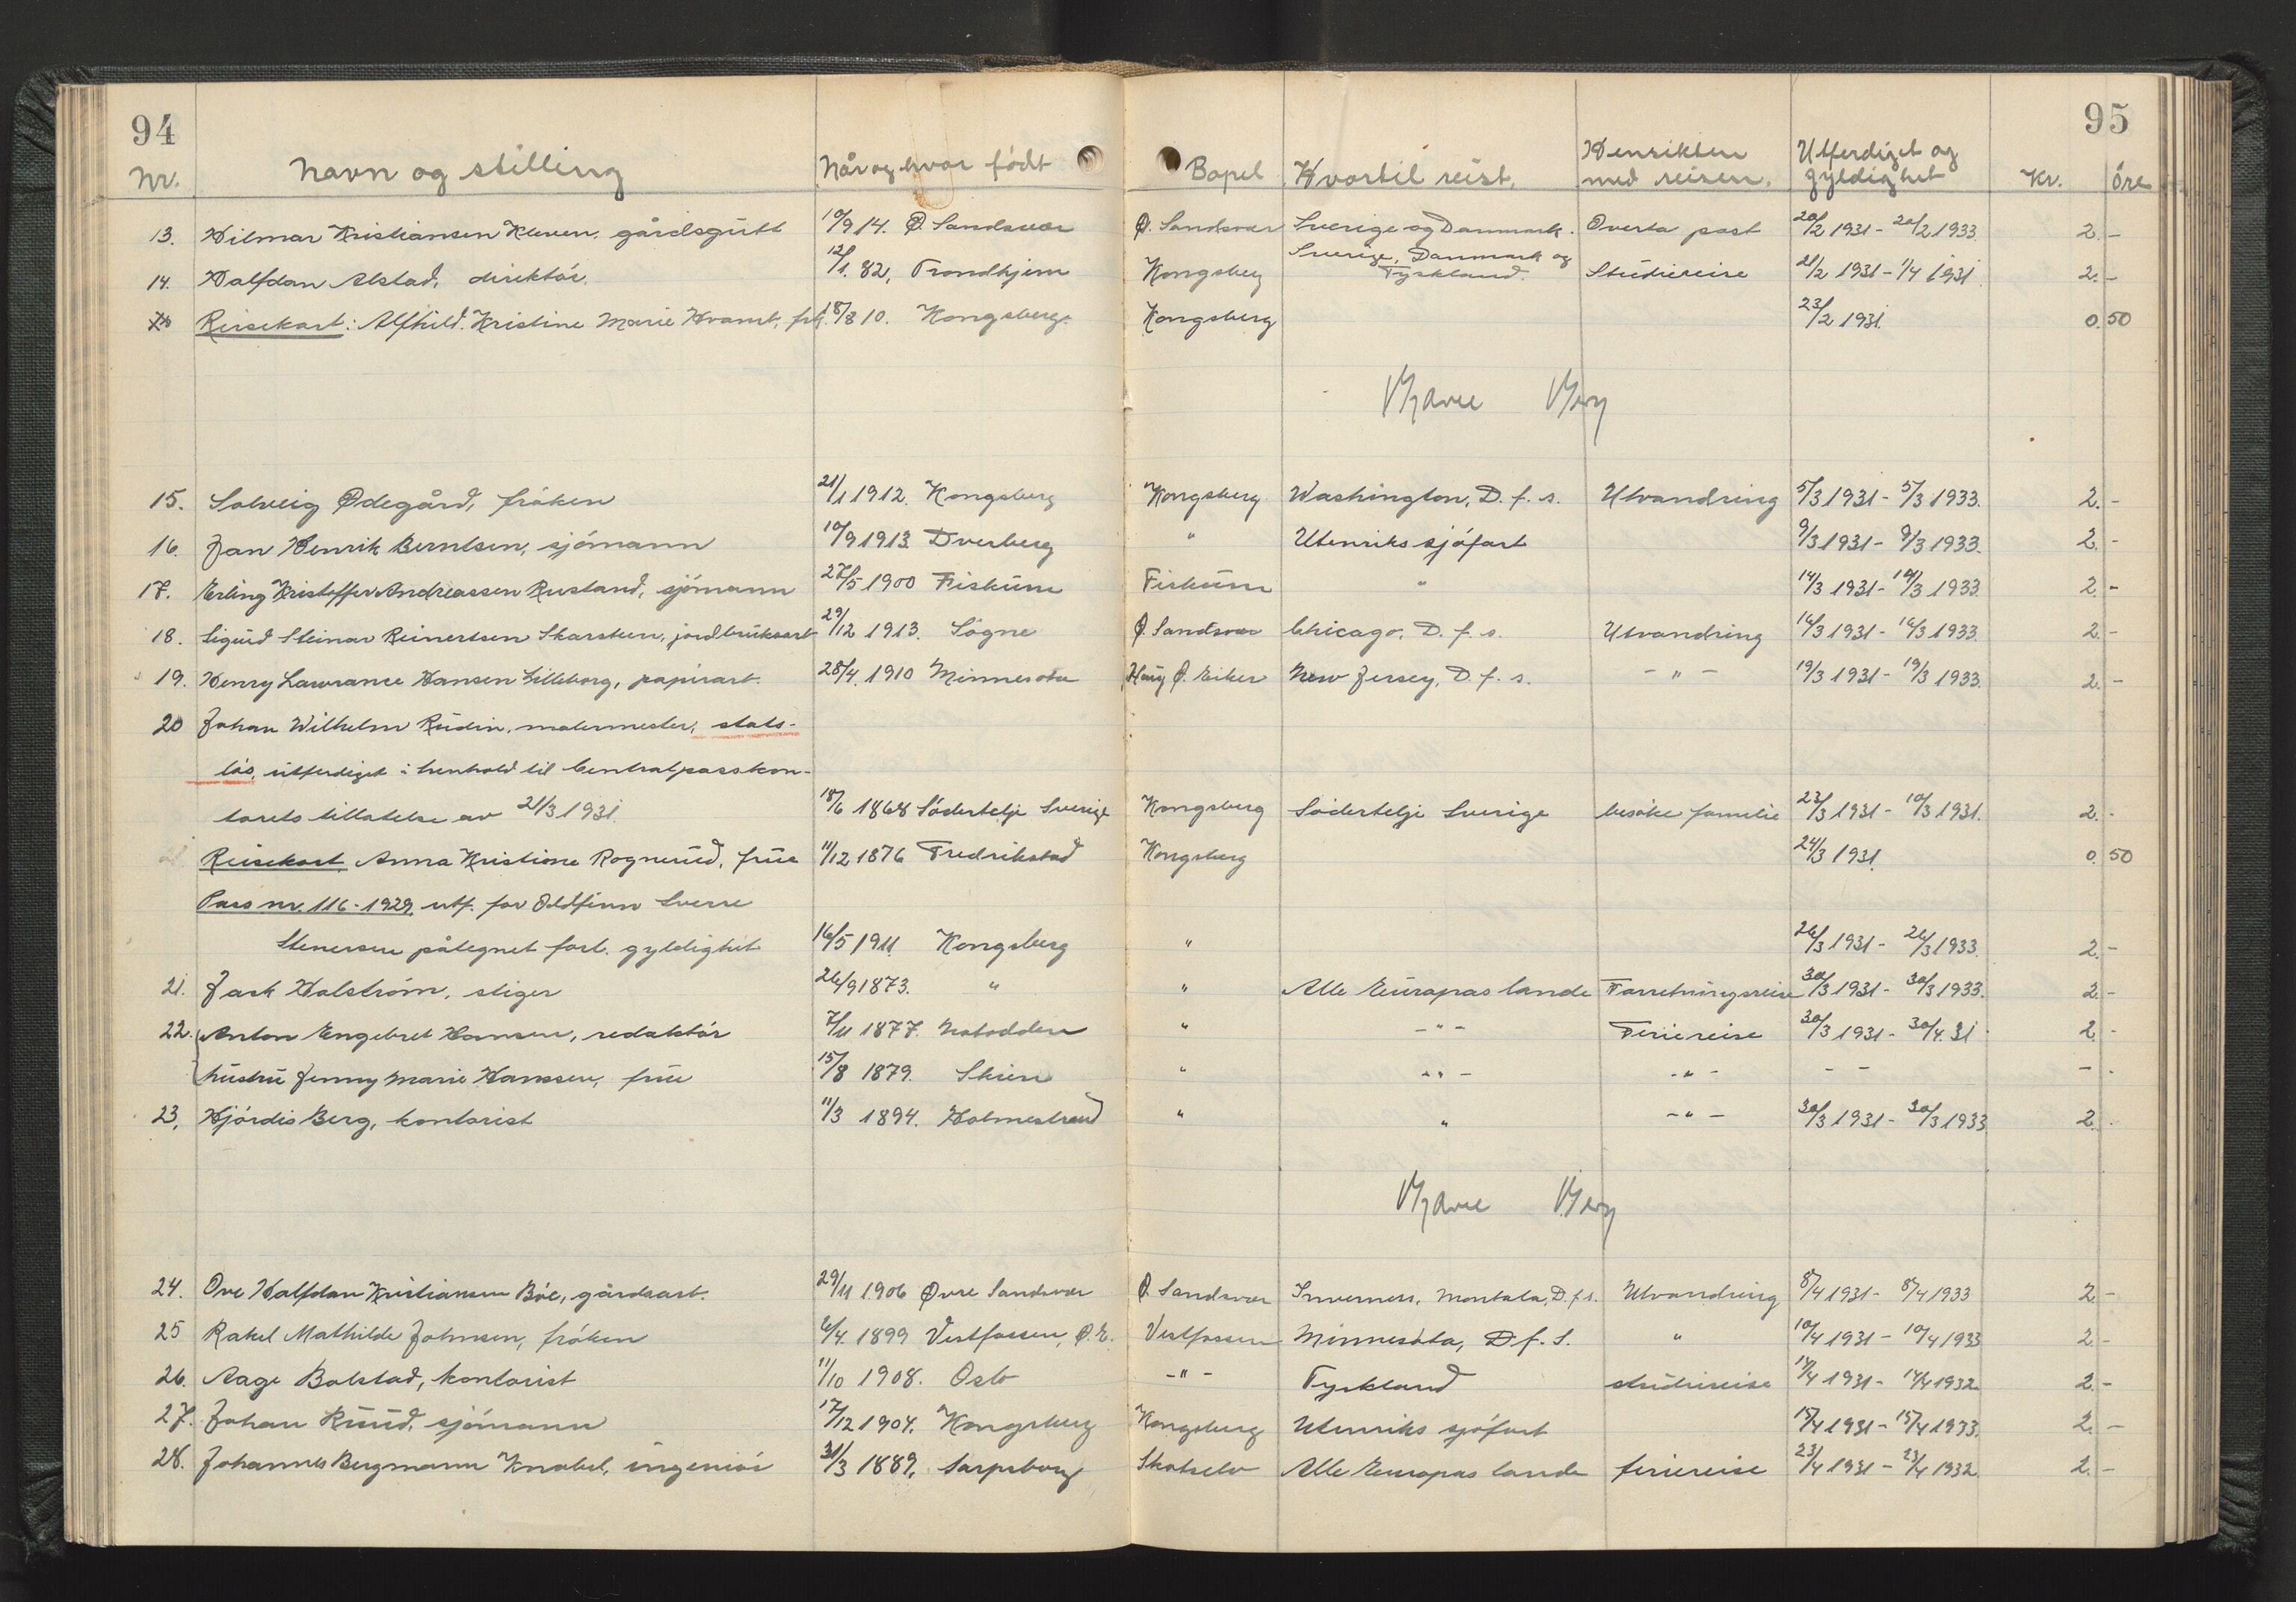 94
95
Nr. Navn og stilling Når og hvor født Bopel Hvortil reist. Hensikten med reisen. Utferdiget og gyldighet Kr. Öre
13. Hilmar Kristiansen Kleven, gårdsgutt 10/9 14. Ø. Sandsvær Ø. Sandsvær Sverige og Danmark. Overta post 20/2 1931 - 20/2 1933. 2. -
14. Halfdan Alstad, direktör. 12/1. 82, Trondhjem Kongsberg Sverige, Danmark og Tyskland. Studiereise 21/2 1931 - 1/4 1931. 2. -
Reisekort: Alfhild Kristine Marie Kvamt, frk. 18/8 10. Kongsberg. Kongsberg 23/2 1931. 0. 50
15. Solveig Ødegård, fröken 21/1 1912. Kongsberg Kongsberg Washington, D. f. s. Utvandring 5/3 1931 - 5/3 1933. 2. -
16. Jan Henrik Berntsen, sjömann 10/9 1913 Dverberg " Utenriks sjöfart 9/3 1931 - 9/3 1933. 2. -
17. Erling Kristoffer Andreassen Rustand, sjömann 27/5 1900 Fiskum Fiskum " 14/3 1931 - 14/3 1933. 2. -
18. Sigurd Steinar Reinertsen Skarsten, jordbruksarb 29/12 1913. Sögne Ø. Sandsvær Chicago, D. f. s. Utvandring 16/3 1931 - 16/3 1933. 2. -
19. Henry Lawrance Hansen Lilleborg, papirarb. 28/4. 1910 Minnesota Haug Ø. Eiker New Jersey, D. f. s. - " - 19/3 1931 - 19/3 1933. 2. -
20 Johan Wilhelm Rudin, malermester, stats-
lös, utferdiget i henhold til Centralpasskon-
torets tillatelse av 21/3 1931. 18/6 1868 Södertelje Sverige Kongsberg Södertelje Sverige besöke familie 23/3 1931 - 10/3 1931. 2. -
Reisekort Anna Kristine Rognerud, frue 11/12 1876 Fredrikstad Kongsberg 24/3 1931. 0. 50
Pass nr. 116 - 1929, utf. for Oddfinn Sverre
Stenersen påtegnet forl. gyldighet 16/5 1911. Kongsberg " 26/3 1931 - 26/3 1933. 2. -
21. Jack Holström, stiger 26/9 1873. " " Alle Europas lande Forretningsreise 30/3 1931 - 30/3 1933. 2. -
22. Anton Engebret Hanssen, redaktör 7/11 1877. Notodden " - " - Feriereise 30/3 1931 - 30/4. 31 2. -
hustru Jenny Marie Hanssen, frue 15/8 1879. Skien " - " - - " - - - - -
23. Hjördis Berg, kontorist 11/3 1894. Holmestrand " " - " - 30/3 1931 - 30/3 1933 2. -
24. Ove Halfdan Kristiansen Böe, gårdsarb. 29/11 1906 Øvre Sandsvær Ø. Sandsvær Inverness, Montala, D. f. s. Utvandring 8/4 1931 - 8/4 1933 2. -
25 Rakel Mathilde Johnsen, fröken 6/4. 1899 Vestfossen, Ø. E. Vestfossen Minnesota, D. f. S. " 10/4 1931 - 10/4 1933 2. -
26. Aage Bolstad, kontorist 11/10 1908. Oslo - " - Tyskland studiereise 14/4 1931 - 14/4 1932. 2. -
27. Johan Ruud, sjömann 17/12 1904. Kongsberg Kongsberg Utenriks sjöfart 15/4 1931 - 15/4 1933. 2. -
28. Johannes Bergmann Knabel, ingeniör 31/3 1889, Sarpsborg Skotselv Alle Europas lande feriereise 23/4 1931 - 23/4 1932. 2. -